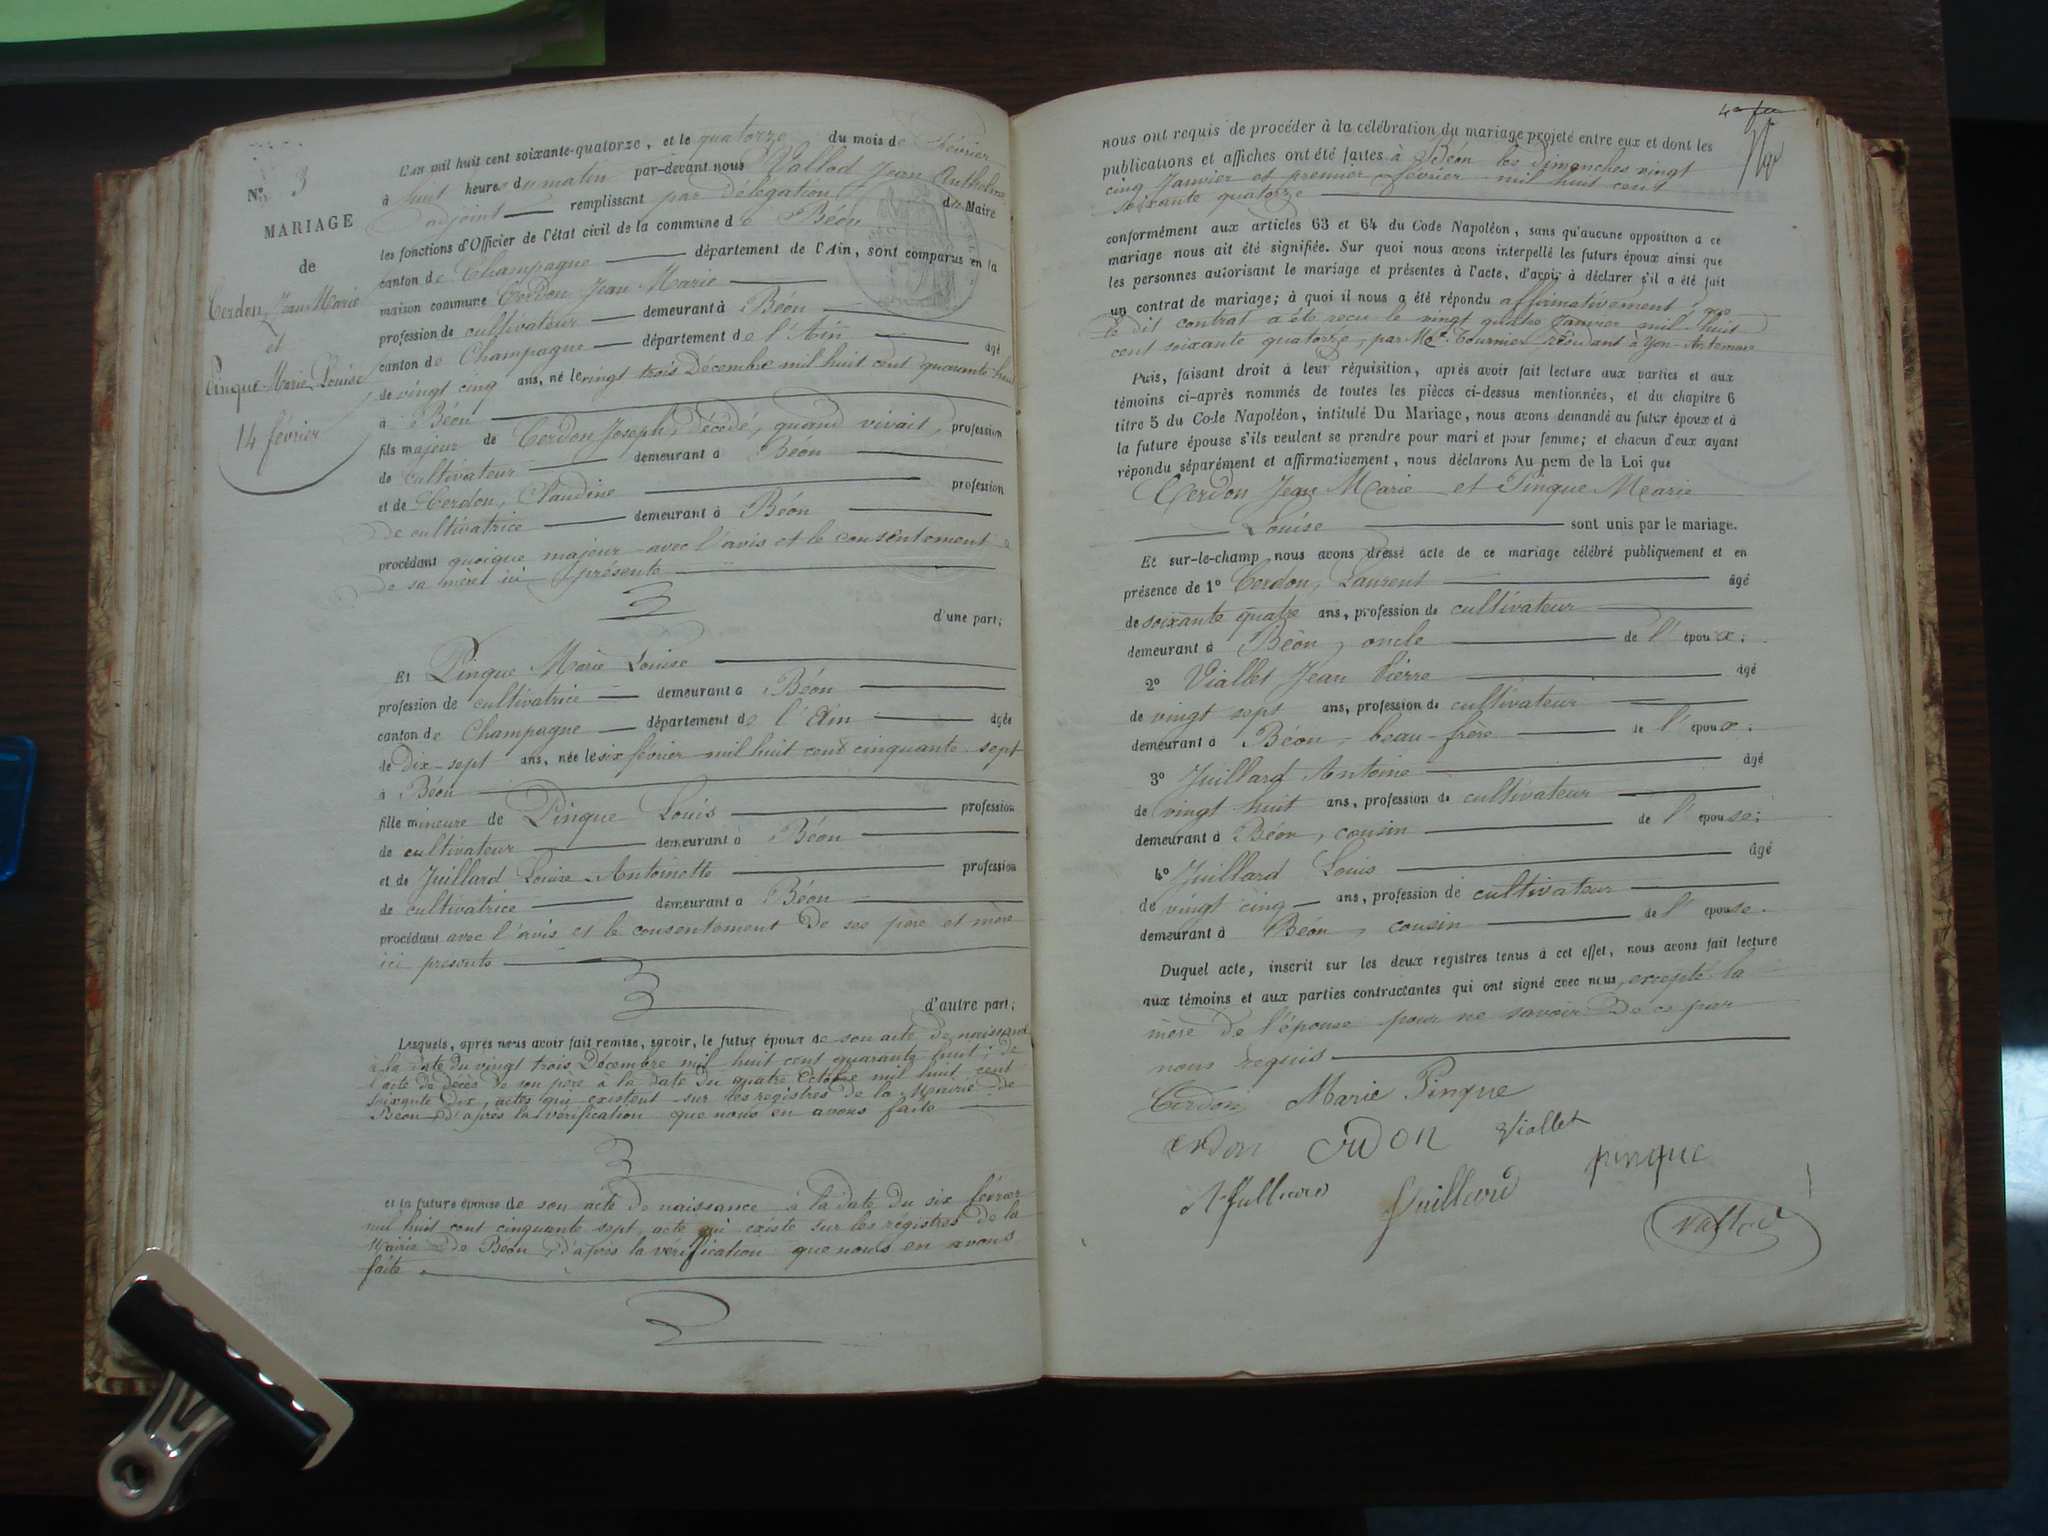 N° 3
MARIAGE
de
Cerdon, Jean Marie
et
Pinque Marie Louise
14 février
L'an mil huit cent soixante-quatorze, et le quatorze du mois de février
à huit heures du matin par-devant nous Vallod Jean Anthelme
adjoint remplissant par délégation du Maire
les fonctions d'Officier de l'état civil de la commune de Béon
canton de Champagne département de l'Ain, sont comparus en la
maison commune Cerdon Jean Marie
profession de cultivateur demeurant à Béon
canton de Champagne département de l'Ain âgé
de vingt cinq ans, né le vingt trois Décembre mil huit cent quarante-huit
à Béon
fils majeur de Cerdon Joseph, décédé, quand vivait, profession
de cultivateur demeurant à Béon
et de Cerdon, Claudine profession
de cultivatrice demeurant à Béon
procédant quoique majeur avec l'avis et le consentement
de sa mère ici présente
d'une part;
Et Pinque Marie Louise
profession de cultivatrice demeurant à Béon
canton de Champagne département de l'Ain âgée
de dix-sept ans, née le six février mil huit cent cinquante-sept
à Béon
fille mineure de Pinque Louis profession
de cultivateur demeurant à Béon
et de Juillard Louise Antoinette profession
de cultivatrice demeurant à Béon
procédant avec l'avis et le consentement de ses père et mère
ici présents
d'autre part;
Lesquels, après nous avoir fait remise, savoir, le futur époux de son acte de naissance
à la date du vingt trois Décembre mil huit cent quarante huit; de
l'acte de décès de son père à la date du quatre Octobre mil huit cent
soixante dix, actes qui existent sur les registres de la Mairie de
Béon d'après la vérification que nous en avons faite
et la future épouse de son acte de naissance à la date du six février
mil huit cent cinquante sept, acte qui existe sur les régistres de la
Mairie de Béon d'après la vérification que nous en avons
faite
nous ont requis de procéder à la célébration du mariage projeté entre eux et dont les
publications et affiches ont été faites à Béon les dimanches vingt
cinq Janvier et premier février mil huit cent
soixante quatorze
conformément aux articles 63 et 64 du Code Napoléon, sans qu'aucune opposition à ce
mariage nous ait été signifiée. Sur quoi nous avons interpellé les futurs époux ainsi que
les personnes autorisant le mariage et présentes à l'acte, d'avoir à déclarer s'il a été fait
un contrat de mariage; à quoi il nous a été répondu affirmativement que
le dit contrat a été reçu le vingt quatre Janvier mil huit
cent soixante quatorze, par Me Tournier résidant à Yon-Artemare
Puis, faisant droit à leur réquisition, après avoir fait lecture aux parties et aux
témoins ci-après nommés de toutes les pièces ci-dessus mentionnées, et du chapitre 6
titre 5 du Code Napoléon, intitulé Du Mariage, nous avons demandé au futur époux et à
la future épouse s'ils veulent se prendre pour mari et pour femme; et chacun d'eux ayant
répondu séparément et affirmativement, nous déclarons Au nom de la Loi que
Cerdon Jean Marie et Pinque Marie
Louise sont unis par le mariage.
Et sur-le-champ nous avons dressé acte de ce mariage célébré publiquement et en
présence de 1° Cerdon, Laurent âgé
de soixante quatre ans, profession de cultivateur
demeurant à Béon, oncle de l'époux;
2° Viallet Jean Pierre âgé
de vingt sept ans, profession de cultivateur
demeurant à Béon, beau-frère de l'époux;
3° Juillard Antoine âgé
de vingt huit ans, profession de cultivateur
demeurant à Béon, cousin de l'épouse;
4° Juillard Louis âgé
de vingt cinq ans, profession de cultivateur
demeurant à Béon, cousin de l'épouse.
Duquel acte, inscrit sur les deux registres tenus à cet effet, nous avons fait lecture
aux témoins et aux parties contractantes qui ont signé avec nous, excepté la
mère de l'épouse pour ne savoir de ce par
nous requis
Cerdon Marie Pinque
Cerdon Cerdon Viallet
pinque
Juillard
Vallod